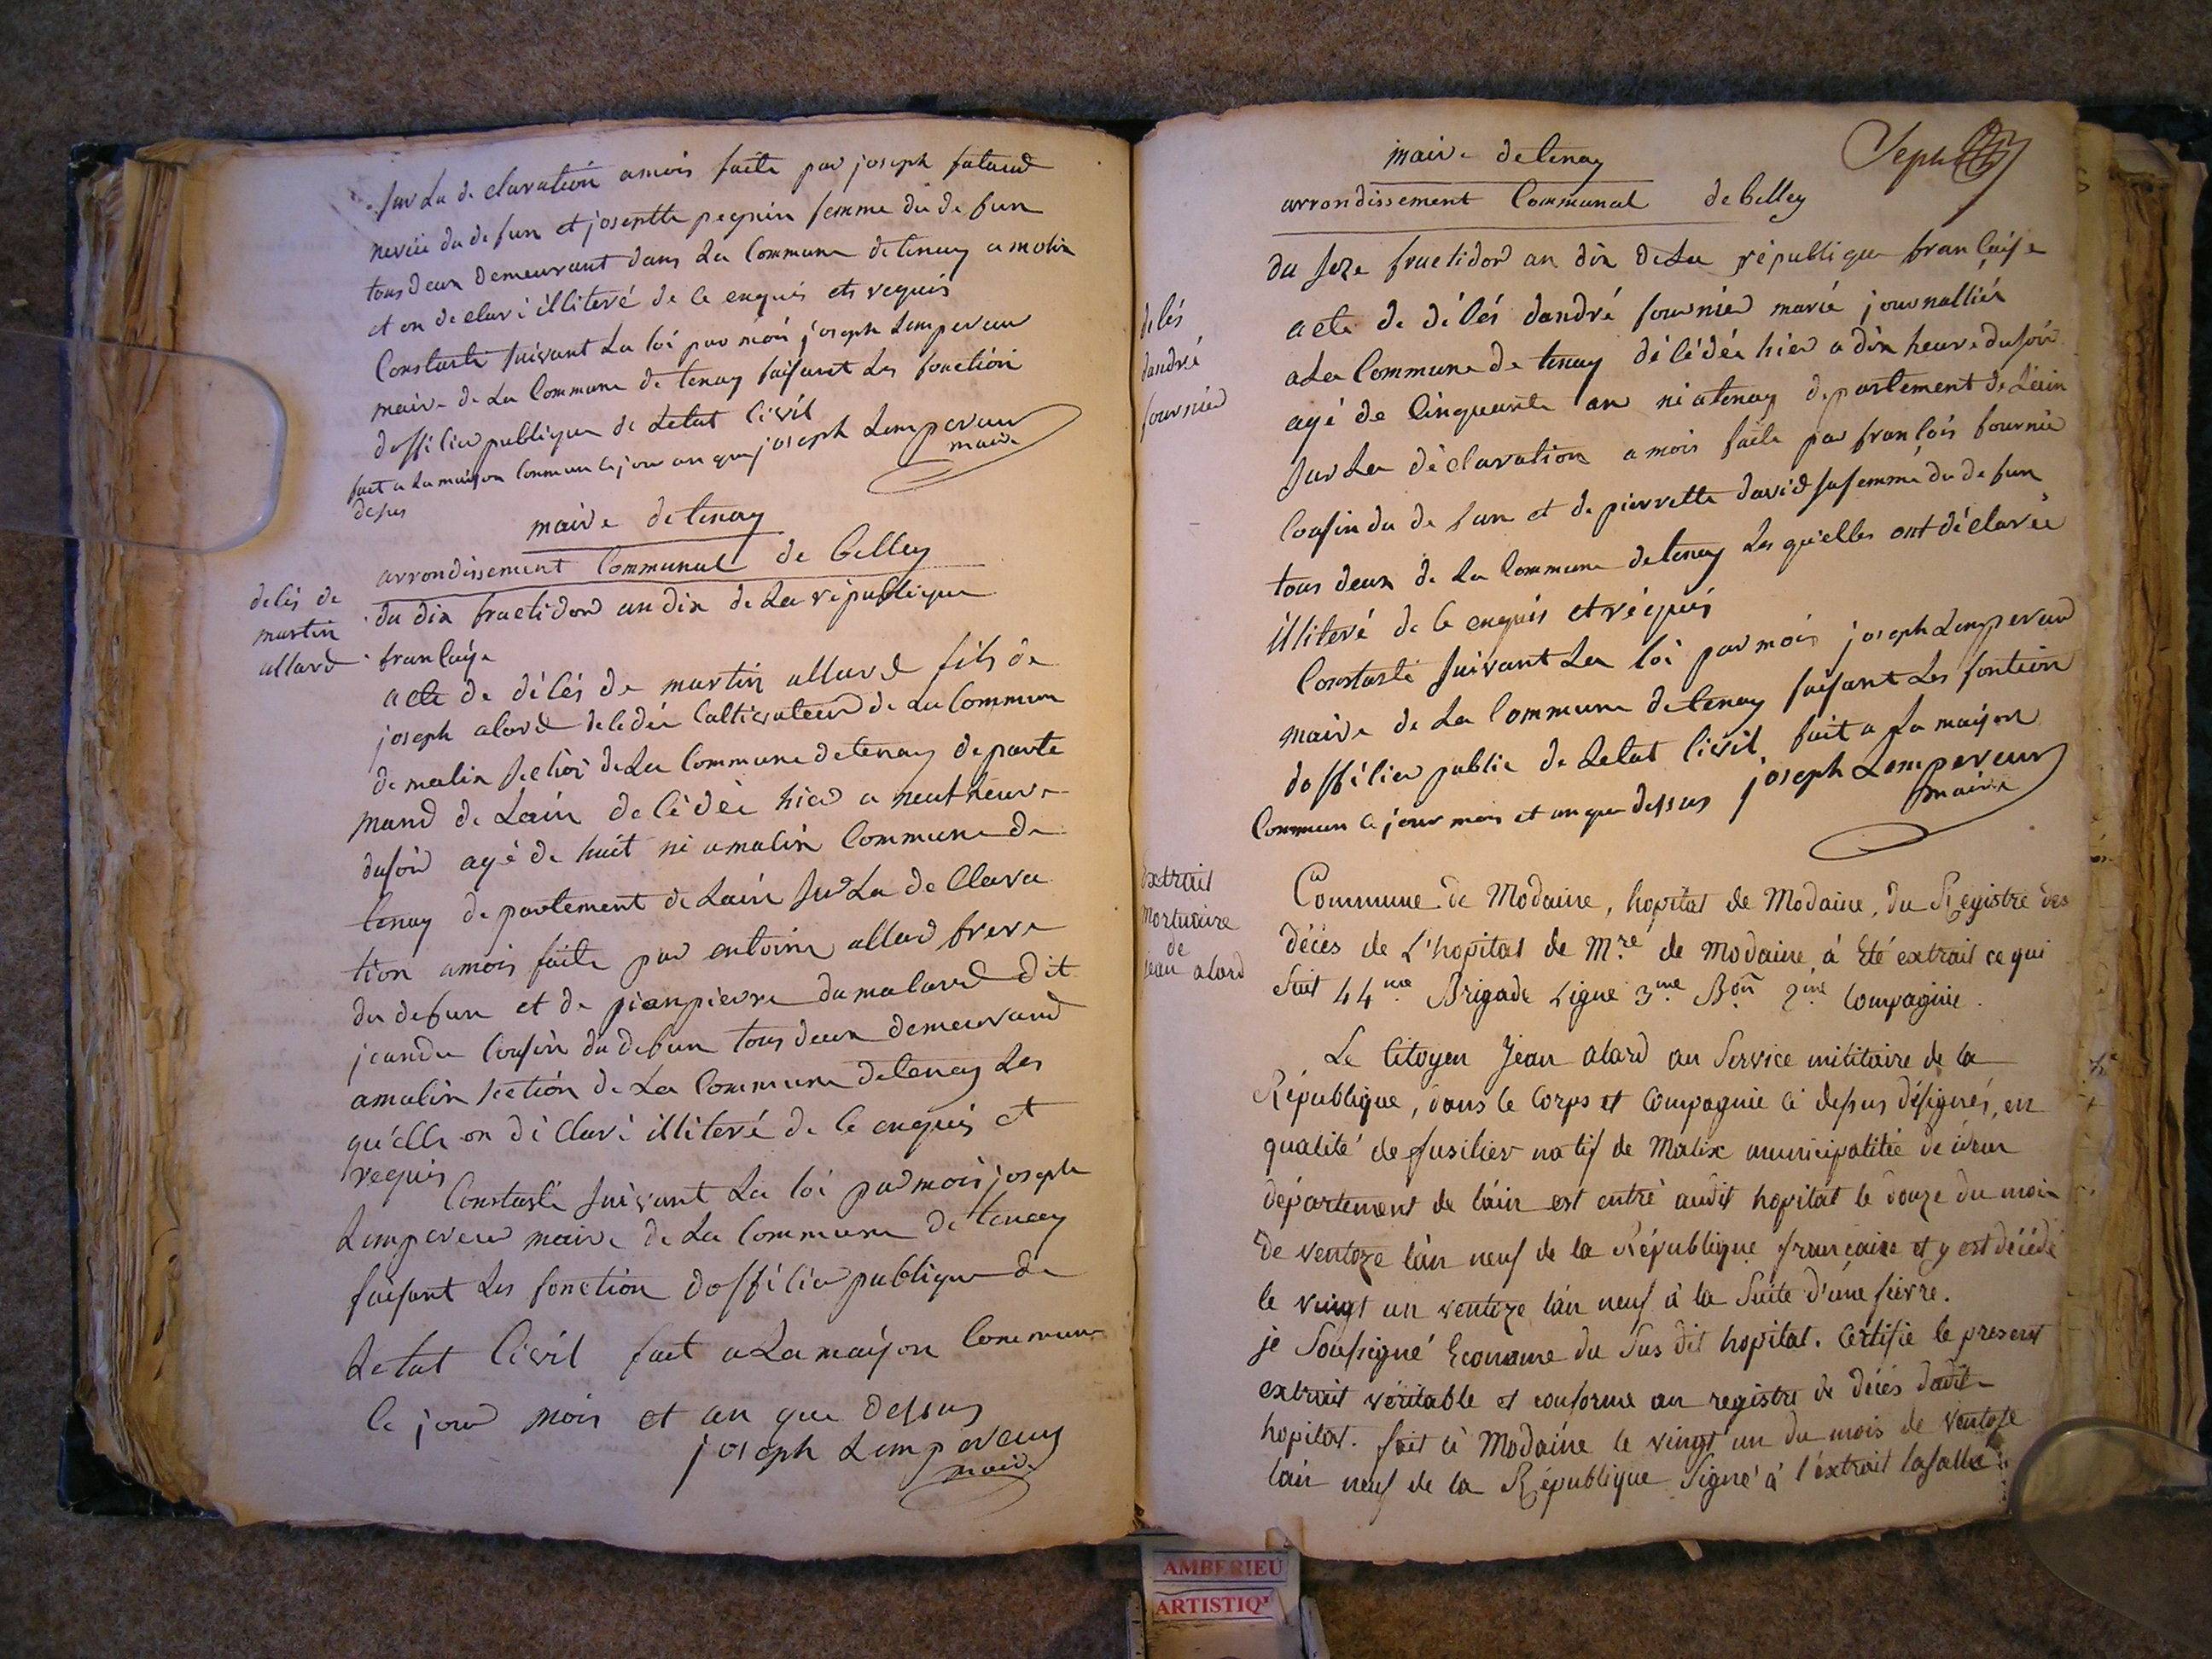 sur La de claration amois faite par joseph
neveu du de fun et josephte peguin femme du de fun
tous deux demeurant dans La Commune de tenay a molix
et on declaré illiteré de ce enquis et requis
Constasté suivant La loi par moi joseph Lempereur
maire de La Commune de tenay faisant Les fonction
dofficier publique de Letat Civil
fait a La maison Commun le jour an que joseph Lempereur
desus maire
maire de tenay
arrondissement Communal de belley
du dix fructidor an dix de La republique
françaíse
decés de
martin
allard
acte de décés de martin allard fils de
joseph alard decedée Cultivateur de La Commun
de malix section de La Commune de tenay departe
mand de Lain décédée hier a neuf heure
du soir agé de huit ni a malix Commune de
tenay departement de Lain sur La declara
tion amois faite par antoine allard frere
du defun et de jeanpierre dumalard dit
jeandu Cousin du defun tous deux demeurand
amalix section de La Commune de tenay Les
quélle on déclaré illiteré de ce enquis et
requis
Constasté suivant La loi par mois joseph
Lempereur maire de La Commune de tenay
faisant Les fonction dofficier publique de
Letat Civil fait a La maison Commun
le jour mois et an que dessus
joseph Lempereur
maire
maire de tenay
arrondissement Communal de belley
du seze fructidor an dix de La république française
décés
dandré
fournier
acte de décés dandré fournier marié journallier
a La Commune de tenay décédée hier a dix heure du soir
agé de Cinquante an ni a tenay departement de Lain
sur La déclaration a mois faite par françois fournier
Cousin du de fun et de pierrette david sa femme du de fun
tous deux de La Commune de tenay Les qu'elles ont déclarée
illiteré de ce enquis et réquis
Constasté suivant La loi par mois joseph Lempereur
maire de La Commune de tenay faisant Les fontion
dofficier public de Letat Civil fait a La maison
Commun le jour mois et an que dessus joseph Lempereur
maire
extrait
mortuaire
de
jean alard
Commune de Modaine, hopital de Modaine, du Registre des
décès de L'hopital de Mre de Modaine à été extrait ce qui
suit 44me Brigade Ligne 3me Bon 2me Compagnie.
Le Citoyen Jean alard au Service militaire de la
République, dans le Corps et Compagnie ci dessus désignés, en
qualité de fusilier natif de Malix municipalitée de
département de láin est entré audit hopital le douze du mois
de ventoze lán neuf de la République française et y est décédé
le vingt un ventoze lán neuf à la Suite d'une fievre.
je Soussigné Econome du Sus dit hopital. Certifie le present
extrait véritable et conforme au registre de décès dudit
hopital. fait à Modaine le vingt un du mois de Ventose
lan neuf de la République Signé à l'éxtrait lasalle
AMBERIEU
ARTISTIQ